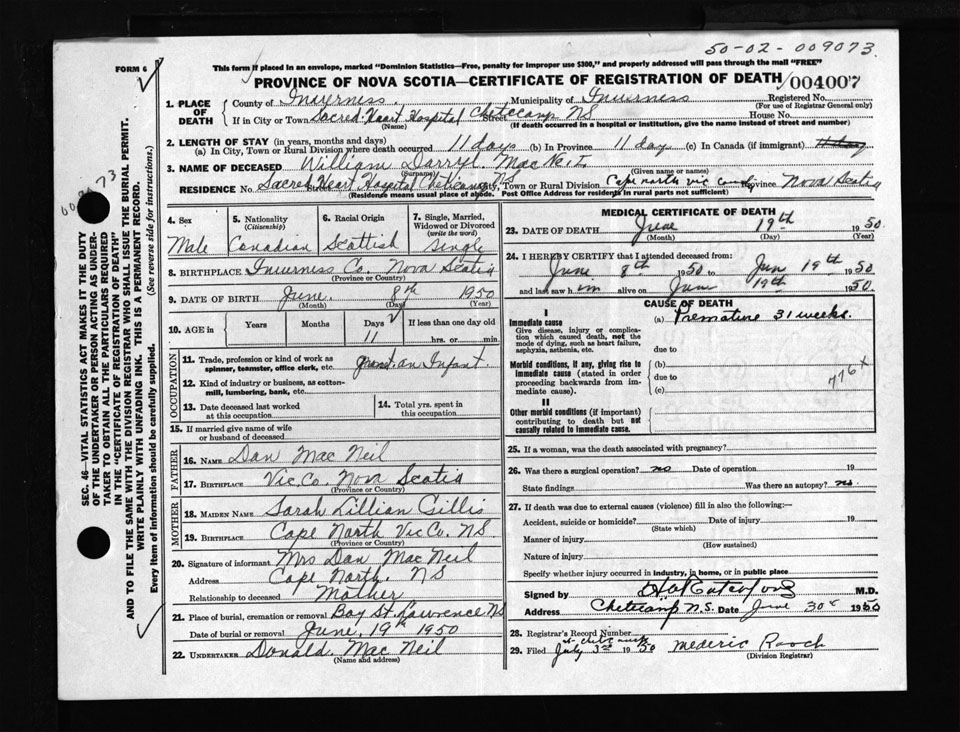 50-02-009073
FORM 6
This form if placed in an envelope, marked "Dominion Statistics—Free, penalty for improper use $300," and properly addressed will pass through the mail "FREE"
PROVINCE OF NOVA SCOTIA—CERTIFICATE OF REGISTRATION OF DEATH
004007
1. PLACE OF DEATH
County of Inverness. Municipality of Inverness Registered No.
(For use of Registrar General only)
If in City or Town Sacred Heart Hospital Street Cheticamp NS House No.
(Name) (If death occurred in a hospital or institution, give the name instead of street and number)
2. LENGTH OF STAY (in years, months and days)
(a) In City, Town or Rural Division where death occurred 11 days (b) In Province 11 day (c) In Canada (if immigrant)
3. NAME OF DECEASED William Darryl Mac Neil
(Surname) (Given name or names)
RESIDENCE No. Sacred Heart Hospital Cheticamp NS Street City, Town or Rural Division Cape North Vic Province Nova Scotia
(Residence means usual place of abode. Post Office Address for residents in rural parts not sufficient)
4. Sex
Male
5. Nationality
(Citizenship)
Canadian
6. Racial Origin
Scottish
7. Single, Married, Widowed or Divorced
(write the word)
Single
8. BIRTHPLACE Inverness Co. Nova Scotia
(Province or Country)
9. DATE OF BIRTH June. 8th 1950
(Month) (Day) (Year)
10. AGE in Years Months Days If less than one day old
11 hrs. or min.
OCCUPATION
11. Trade, profession or kind of work as
spinner, teamster, office clerk, etc. an Infant
12. Kind of industry or business, as cotton-
mill, lumbering, bank, etc.
13. Date deceased last worked
at this occupation
14. Total yrs. spent in
this occupation
15. If married give name of wife
or husband of deceased
FATHER
16. NAME Dan Mac Neil
17. BIRTHPLACE Vic. Co. Nova Scotia
(Province or Country)
MOTHER
18. MAIDEN NAME Sarah Lillian Gillis
19. BIRTHPLACE Cape North Vic Co. NS
(Province or Country)
20. Signature of informant Mrs Dan Mac Neil
Address Cape North. NS
Relationship to deceased Mother
21. Place of burial, cremation or removal Bay St. Lawrence NS
Date of burial or removal June, 19th 1950
22. UNDERTAKER Donald. Mac Neil
(Name and address)
MEDICAL CERTIFICATE OF DEATH
23. DATE OF DEATH June 19th 1950
(Month) (Day) (Year)
24. I HEREBY CERTIFY that I attended deceased from:
June 8th 1950 to Jun 19th 1950
and last saw him alive on June 19th 1950
CAUSE OF DEATH
I
Immediate cause
Give disease, injury or complica-
tion which caused death, not the
mode of dying, such as heart failure,
asphyxia, asthenia, etc.
(a) Premature 31 weeks.
due to
Morbid conditions, if any, giving rise to
immediate cause (stated in order
proceeding backwards from im-
mediate cause).
(b)
due to
(c)
776x
II
Other morbid conditions (if important)
contributing to death but not
causally related to immediate cause.
25. If a woman, was the death associated with pregnancy?
26. Was there a surgical operation? no Date of operation 19
State findings Was there an autopsy? no.
27. If death was due to external causes (violence) fill in also the following:—
Accident, suicide or homicide? Date of injury 19
(State which)
Manner of injury
(How sustained)
Nature of injury
Specify whether injury occurred in industry, in home, or in public place
Signed by M.D.
Address Cheticamp N.S. Date June 30 1950
28. Registrar's Record Number
29. Filed July 3rd 1950 Mederic Roach
(Division Registrar)
SEC. 46—VITAL STATISTICS ACT MAKES IT THE DUTY
OF THE UNDERTAKER OR PERSON ACTING AS UNDER-
TAKER TO OBTAIN ALL THE PARTICULARS REQUIRED
IN THE "CERTIFICATE OF REGISTRATION OF DEATH"
AND TO FILE THE SAME WITH THE DIVISION REGISTRAR WHO SHALL ISSUE THE BURIAL PERMIT.
WRITE PLAINLY WITH UNFADING INK. THIS IS A PERMANENT RECORD.
Every item of information should be carefully supplied. (See reverse side for instructions.)